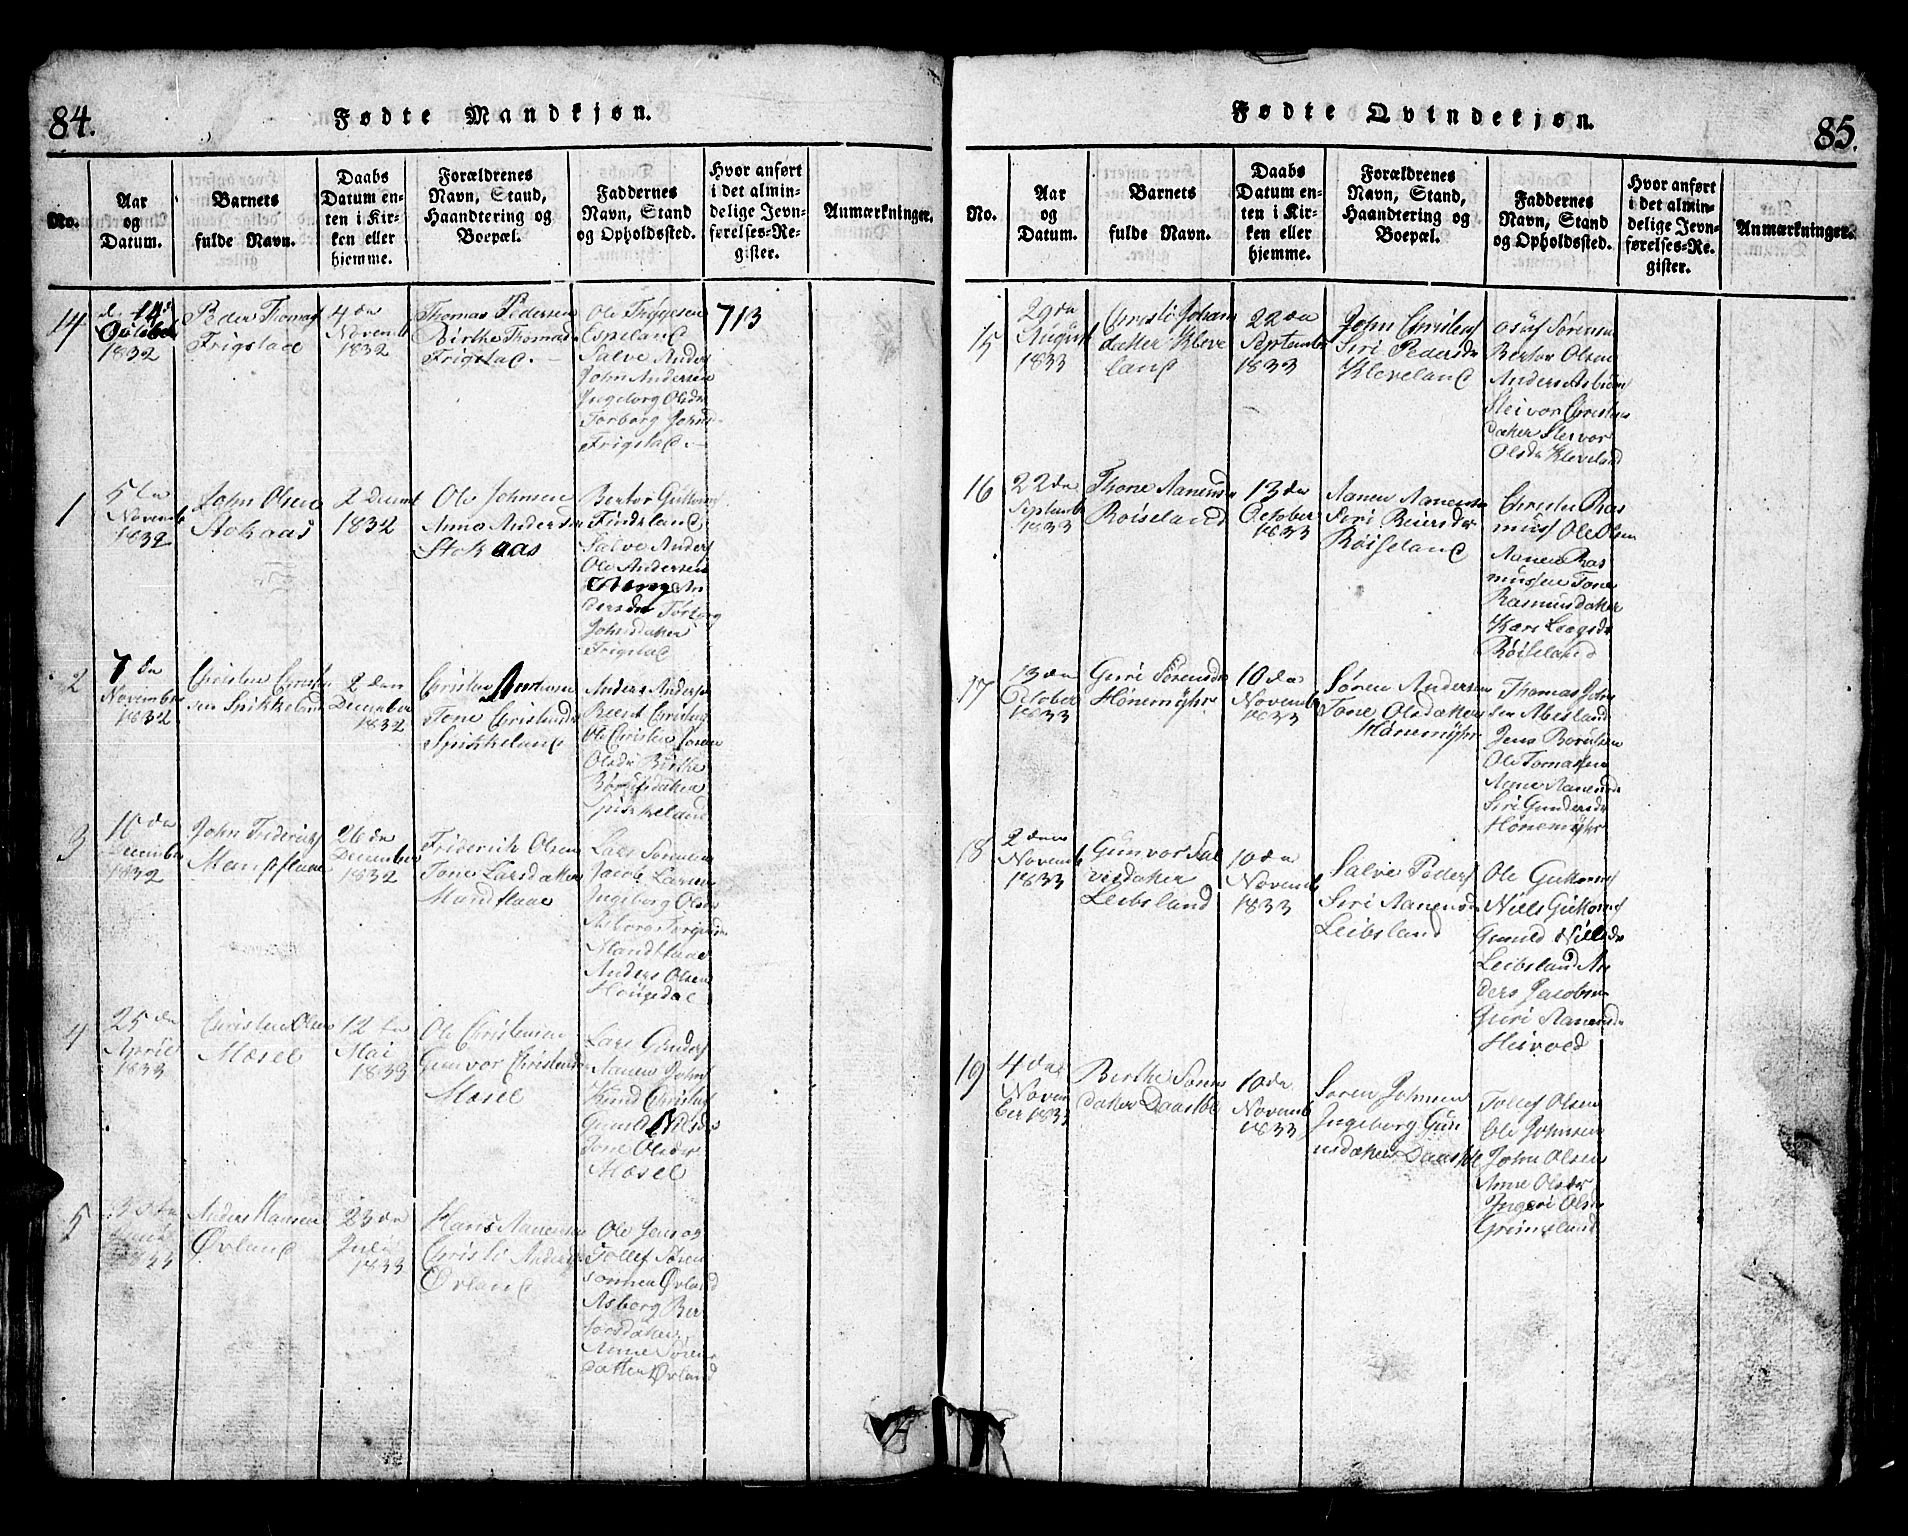 84.
Fødte Mandkjøn.
No.
Aar
og
Datum.
Barnets
fulde Navn.
Daabs
Datum en-
ten i Kir-
ken eller
hjemme.
Forældrenes
Navn, Stand,
Haandtering og
Boepæl.
Faddernes
Navn, Stand
og Opholdssted.
Hvor anført
i det almin-
delige Jevn-
førelses-Re-
gister.
Anmærkninger.
14
14
October
1832
Peder Thomas
Frigstad
4 da
Novemb
1832
Thomas Pedersen
Birthe Thomasd
Frigstad
Ole
Espeland
Salve Anders
John Andersen
Ingeborg Olsdr
Torborg Johnsd
Frigstad
713
1
5 da
Novemb
1832
John Olsen
Stokaas
2 Decemb
1832
Ole Johnsen
Anne Andersdr
Stokaas
Bertor Guttorms
Findsland
Salve Anders
Ole Andersen
An
dersdr Torborg
Johnsdaker
Frigstad
2
7 da
November
1832
Christen Christen
sen Spikkeland
2 den
December
1832
Christen
Tone Christensdr
Spikkeland
Anders Anders
Berent Christens
Ole Christen
Olsdr Birthe
Spikkeland
3
10 da
December
1832
John Friderichs
Manflaae
26 da
December
1832
Friderich Olsen
Tone Larsdaker
Mandflaae
Lars
Jacob Larsen
Ingeborg Olsdr
Asborg
Mandflaae
Anders Olsen
Hougedal
4
25 da
April
1833
Christen Olsen
Mosel
12 ta
Mai
1833
Ole Christensen
Gunvor Christensdr
Mosel
Lars Gunders
Aanen John
Knud Christens
Gunild Nilsdr
Tone Olsdr
Mosel
5
1833
Anders Hansen
Øvland
23 da
Juli
1833
Hans Aanensen
Christi Anders
Øvland
Ole Jens og
Tollef Søren
sønnen Øvland
Asborg Ber
torsdaker
Anne Søren
datter Øvland
85.
Fødte Qvindekjøn.
No.
Aar
og
Datum.
Barnets
fulde Navn.
Daabs
Datum en-
ten i Kir-
ken eller
hjemme.
Forældrenes
Navn, Stand,
Haandtering og
Boepæl.
Faddernes
Navn, Stand
og Opholdssted.
Hvor anført
i det almin-
delige Jevn-
førelses-Re-
gister.
Anmærkninger.
15
29 da
August
1833
Christi Johans
datter Kleve
land
22 da
Septemb
1833
John Christens
Siri Pedersdr
Kleveland
Osuf Sørensen
Bertor Olsen
Anders Asbiørns
Steivor Christens
daker Steivor
Olsdr Kleveland
16
22 da
Septemb
1833
Thone Aanensdr
Roiseland
13 da
October
1833
Aanen Aanensen
Siri Beiersdr
Røiseland
Christen Ras
mus Ole Olsen
Aanen Ras
mussen Tone
Rasmusdaker
Kari
Røiseland
17
13 da
October
1833
Guri Sørensdr
Hønemyhr
10 da
Novemb
1833
Søren Andersen
Tone Olsdaker
Hønemyhr
Thomas John
sen Abesland
Jens
Ole Tomassen
Anne Aanensdr
Siri Gundersdr
Hønemyhr
18
2 den
Novemb
1833
Gunvor Sal
vesdaker
Leibsland
10 da
Novemb
1833
Salve Peders
Siri Aanensdr
Leibsland
Ole Guttorms
Niels Guttorms
Gunild Nielsdr
Leibsland An
ders Jacobsen
Guri Aanensdr
Heivold
19
4 da
Novem
ber 1833
Berthe Sørens
daker Daastøl
10 da
Novemb
1833
Søren Johnsen
Ingeborg Gun
nsdaker Daastøl
Tollef Olsen
Ole Johnsen
John Olsen
Anne Olsdr
Ingeri Olsd
Grimsland